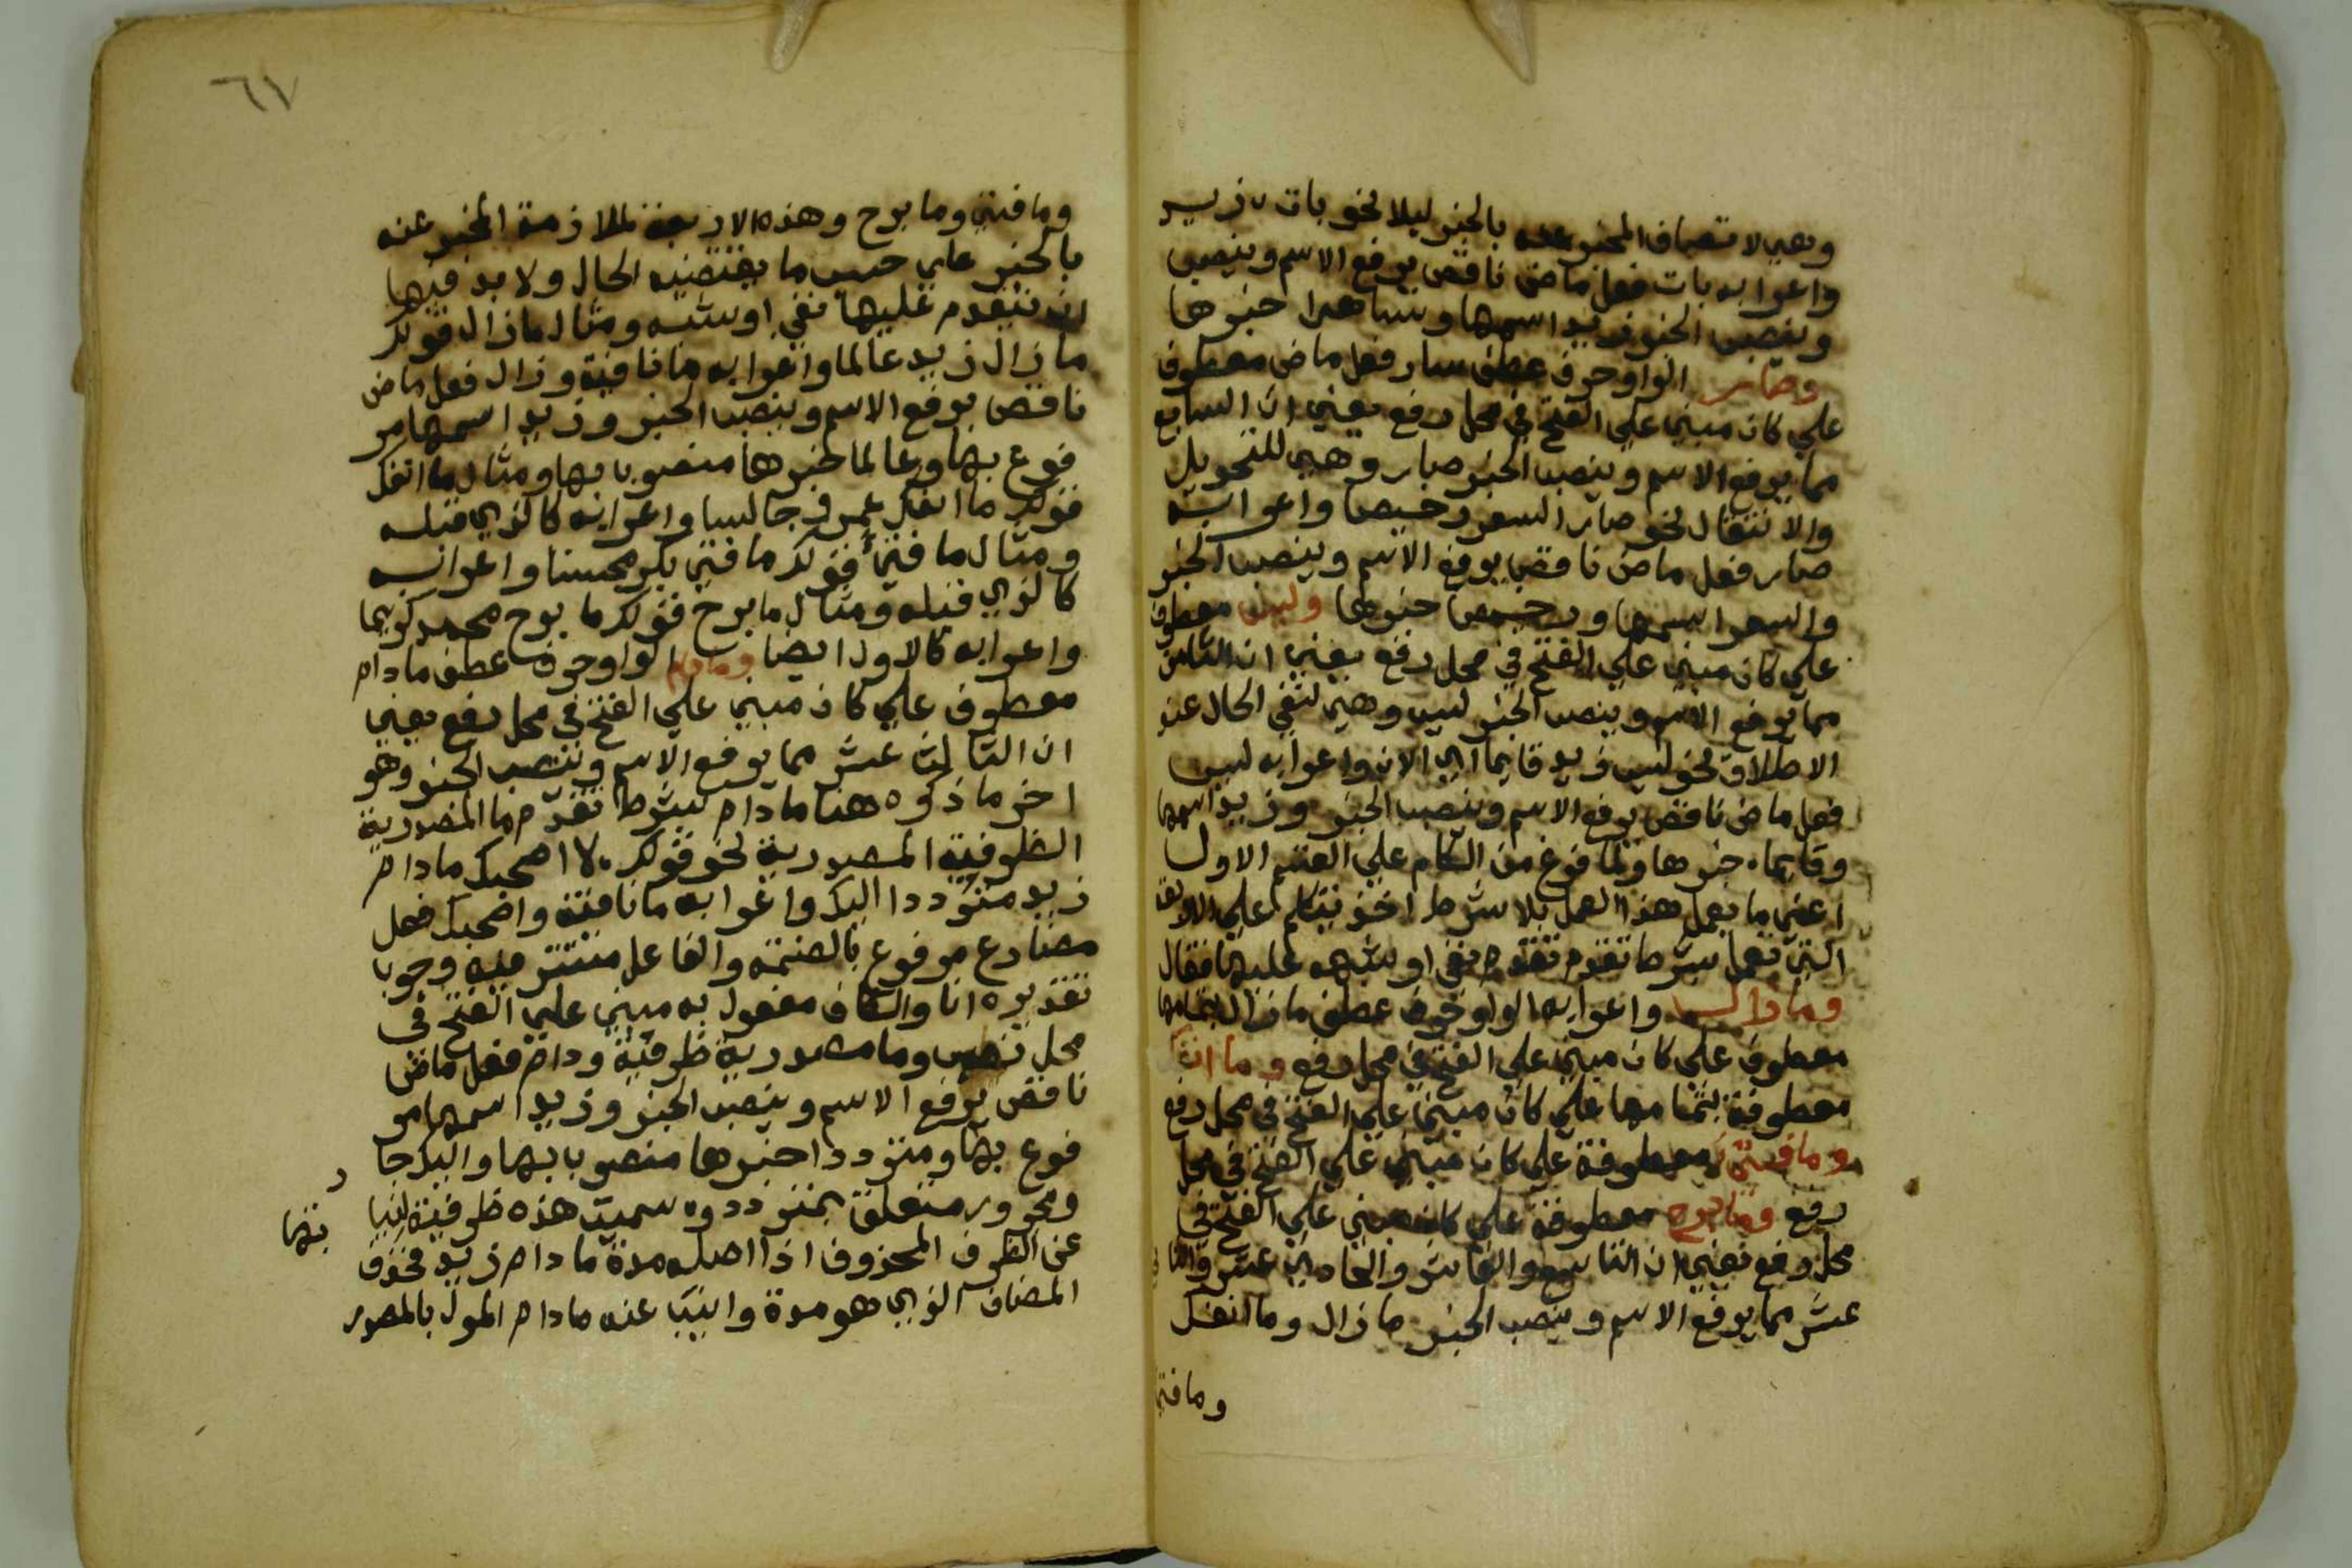 وهي لاتصاف المخبر عنه بالخبر ليلا نحو بات زيد
واعرابه بات فعل ماض ناقص يرفع الاسم وينصب
وينصب الخبر وزيد اسمها وساهرا خبرها
وصار الواو حرف عطف صار فعل ماض معطوف
علي كان مبني علي الفتح في محل رفع يعني ان السابع
مما يرفع الاسم وينصب الخبر صار وهي للتحويل
والانتقال نحو صار السعر رخيصا واعرابه
صار فعل ماض ناقص يرفع الاسم وينصب الخبر
والسعر اسمها ورخيصا خبرها وليس معطوف
علي كان مبني علي الفتح في محل رفع يعني ان الثامن
مما يرفع الاسم وينصب الخبر ليس وهي لنفي الحال عند
الاطلاق نحو ليس زيد قايما اي الان واعرابه ليس
فعل ماض ناقص يرفع الاسم وينصب الخبر وزيد اسمها
وقايما خبرها ولما فرغ من الكلام علي القسم الاول
اعني ما يعمل هذا العمل بلا شرط اخذ يتكلم علي الاربعة
التي تعمل بشرط تقدم تقدم نفي او شبهه عليها فقال
وما زال واعرابه الواو حرف عطف ما زال بتمامها
معطوف علي كان مبني علي الفتح في محل رفع وما انفك
معطوفة بتمامها علي كان مبني علي الفتح في محل رفع
وما فتئ معطوفة علي كان مبني علي الفتح في محل
رفع وما برح معطوفة علي كان مبني علي الفتح في
محل رفع يعني ان التاسع والعاشر والحادي عشر والثاني
عشر مما يرفع الاسم وينصب الخبر ما زال وما انفك
وما فتي
٦٧
وما فتي وما برح وهذه الاربعة لملازمة المخبر عنه
بالخبر علي حسب ما يقتضيه الحال ولا بد فيها
ان يتقدم عليها نفي او شبهه ومثال ما زال قولك
ما زال زيد عالما واعرابه ما نافية وزال فعل ماض
ناقص يرفع الاسم وينصب الخبر وزيد اسمها مر
فوع بها وعالما خبرها منصوب بها ومثال ما انفك
قولك ما انفك عمرو جالسا واعرابه كالذي قبله
ومثال ما فتئ قولك ما فتي بكر محسنا واعرابه
كالذي قبله ومثال ما برح قولك ما برح محمد كريما
واعرابه كالاول ايضا وما دام الواو حرف عطف ما دام
معطوف علي كان مبني علي الفتح في محل رفع يعني
ان الثالث عشر مما يرفع الاسم وينصب الخبر وهو
اخر ما ذكره هنا ما دام بشرط تقدم ما المصدرية
الظرفية المصدرية نحو قولك لا اصحبك ما دام
زيد مترددا اليك واعرابه ما نافية واصحبك فعل
مضارع مرفوع بالضمة والفاعل مستتر فيه وجوبا
تقديره انا والكاف مفعول به مبني علي الفتح في
محل نصب وما مصدرية ظرفية ودام فعل ماض
ناقص يرفع الاسم وينصب الخبر وزيد اسمها مر
فوع بها ومترددا خبرها منصوب بها واليك جا
ر
ومجرور متعلق بمتردد وسميت هذه ظرفية لنيا
بتها
عن الظرف المحذوف اذ اصله مدة ما دام زيد فحذف
المضاف الذي هو مدة وانيب عنه ما دام المول بالمصدر